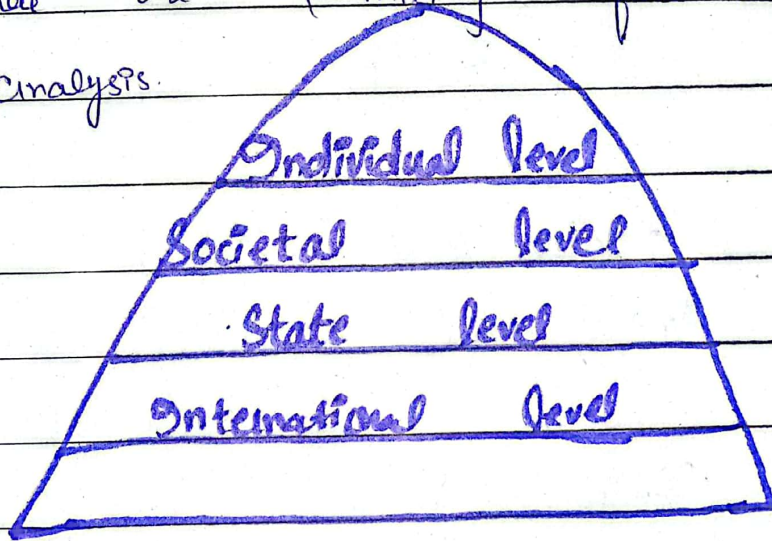 analysis.
Individual level
Societal level
State level
International level